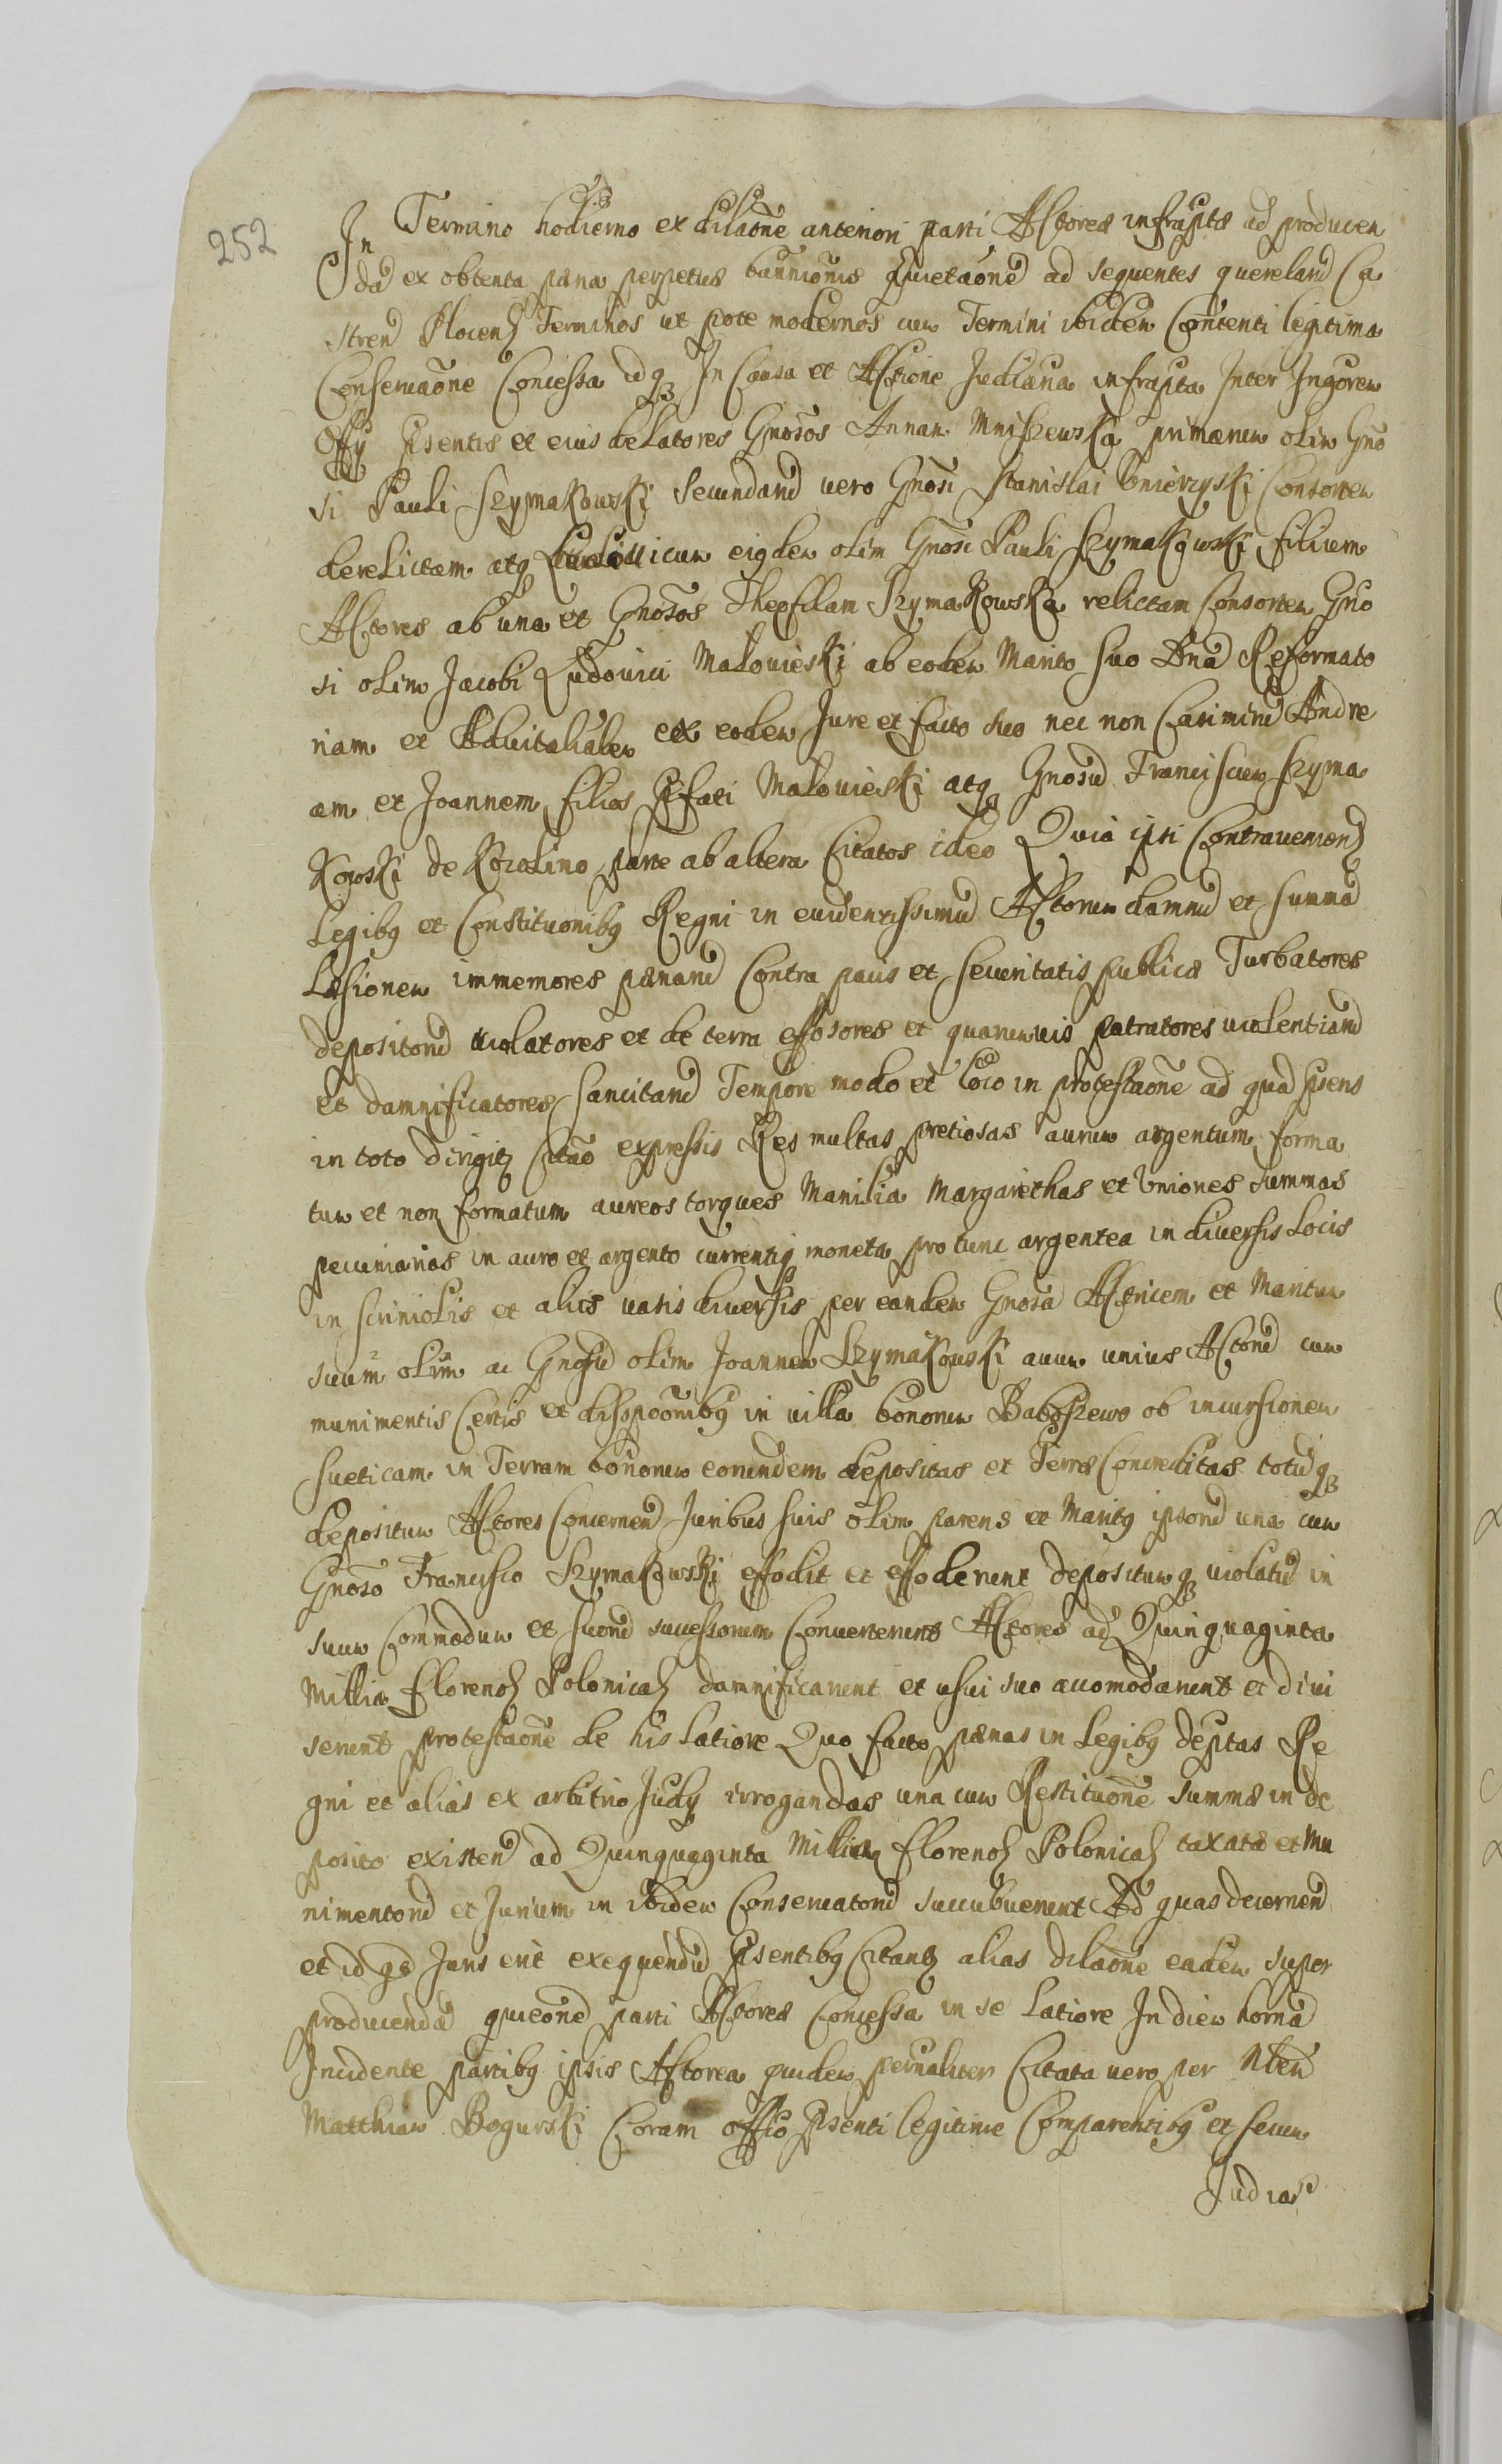 252
In Termino hodierno ex dilaone anteriori parti Actorea infrapta ad producen
da ex obtenta pæna perpetuæ bannionis quietaone ad sequentes querelaru Ca
stren Plocen Terminos ut pote modernos cum Termini ibidem Contenti legitima
Conservaone Concessa idq In Causa et Actione Judiciaria infrapta Inter Instigorem
Offy Psentis et eius delatores Gnosos Annam Mniszewska primarum olim Gno
si Pauli Szymakowski secundaru vero Gnosi Stanislai Unierzyski Consortem
derelictam atq Ludovicum eigdem olim Gnosi Pauli Szymakowski filium
Actores ab una et Gnosos Theofilam Szymakowska relictam Consortem Gno
si olim Jacobi Ludovici Malowieski ab eodem Marito suo Bna Reformato
riam et Advitalialem ex eodem Jure et facto suo nec non Casimiru Andre
am et Joannem filios Pfati Malowieski atq Gnosu Franciscum Szyma
kowski de Koziolino parte ab altera Citatos ideo Quia ipsi Contravenien
Legibq et Constituonibq Regni in evidentissimu Actorum damnu et summa
Læsionem immemores pænaru Contra pacis et securitatis publicæ Turbatores
depositoru violatores et de terra effosores et quarumvis patratores violentiaru
et damnificatores sancitaru Tempore modo et loco in protestaone ad qua psens
in toto dirigitz Citao expressis Res multas pretiosas aurum argentum forma
tum et non formatum aureos torques Manilia Margarethas et Uniones summas
pecuniarias in auro et argento currentiq moneta pro tunc argentea in diversis Locis
in scriniolis et aliis vasis diversis per eandem Gnosa Actricem et Maritum
suum olim ac Gnosu olim Joannem Szymakowski avum unius Actoru cum
munimentis Certis et dispooinibq in villa bonorum Baboszewo ob incursionem
sueticam in Terram bonorum eorundem depositas et Terræ Concreditas totuq
depositum Actores Concernen Juribus suis olim parens et Maritq ipsoru una cum
Gnoso Francisco Szymakowski effodit et effoderunt depositumq violatu in
suum Commodum et suoru successorum Converterunt Actores ad Quinquaginta
Millia florenos Polonicas damnificarunt et usui suo accomodarunt et divi
serunt protestaone de his latiore Quo facto pænas in Legibq deptas Re
gni et alias ex arbitrio Judy irrogandas una cum Restituone summæ in de
posito existen ad Quinquaginta Millia florenos Polonicas taxatæ et Mu
nimentoru et Jurium in ibidem Conservatoru succubuerunt Ad quas decernen
et id qd Juris erit exequendu Psentibq Citantz alias dilaone eadem super
producenda quieone parti Actorea Concessa in se latiore In diem horna
Incidente partibq ipsis Actorea quidem personaliter Citata vero per Nlem
Matthiam Bogurski Coram offo Psenti legitime Comparentibq et secum
Judiar